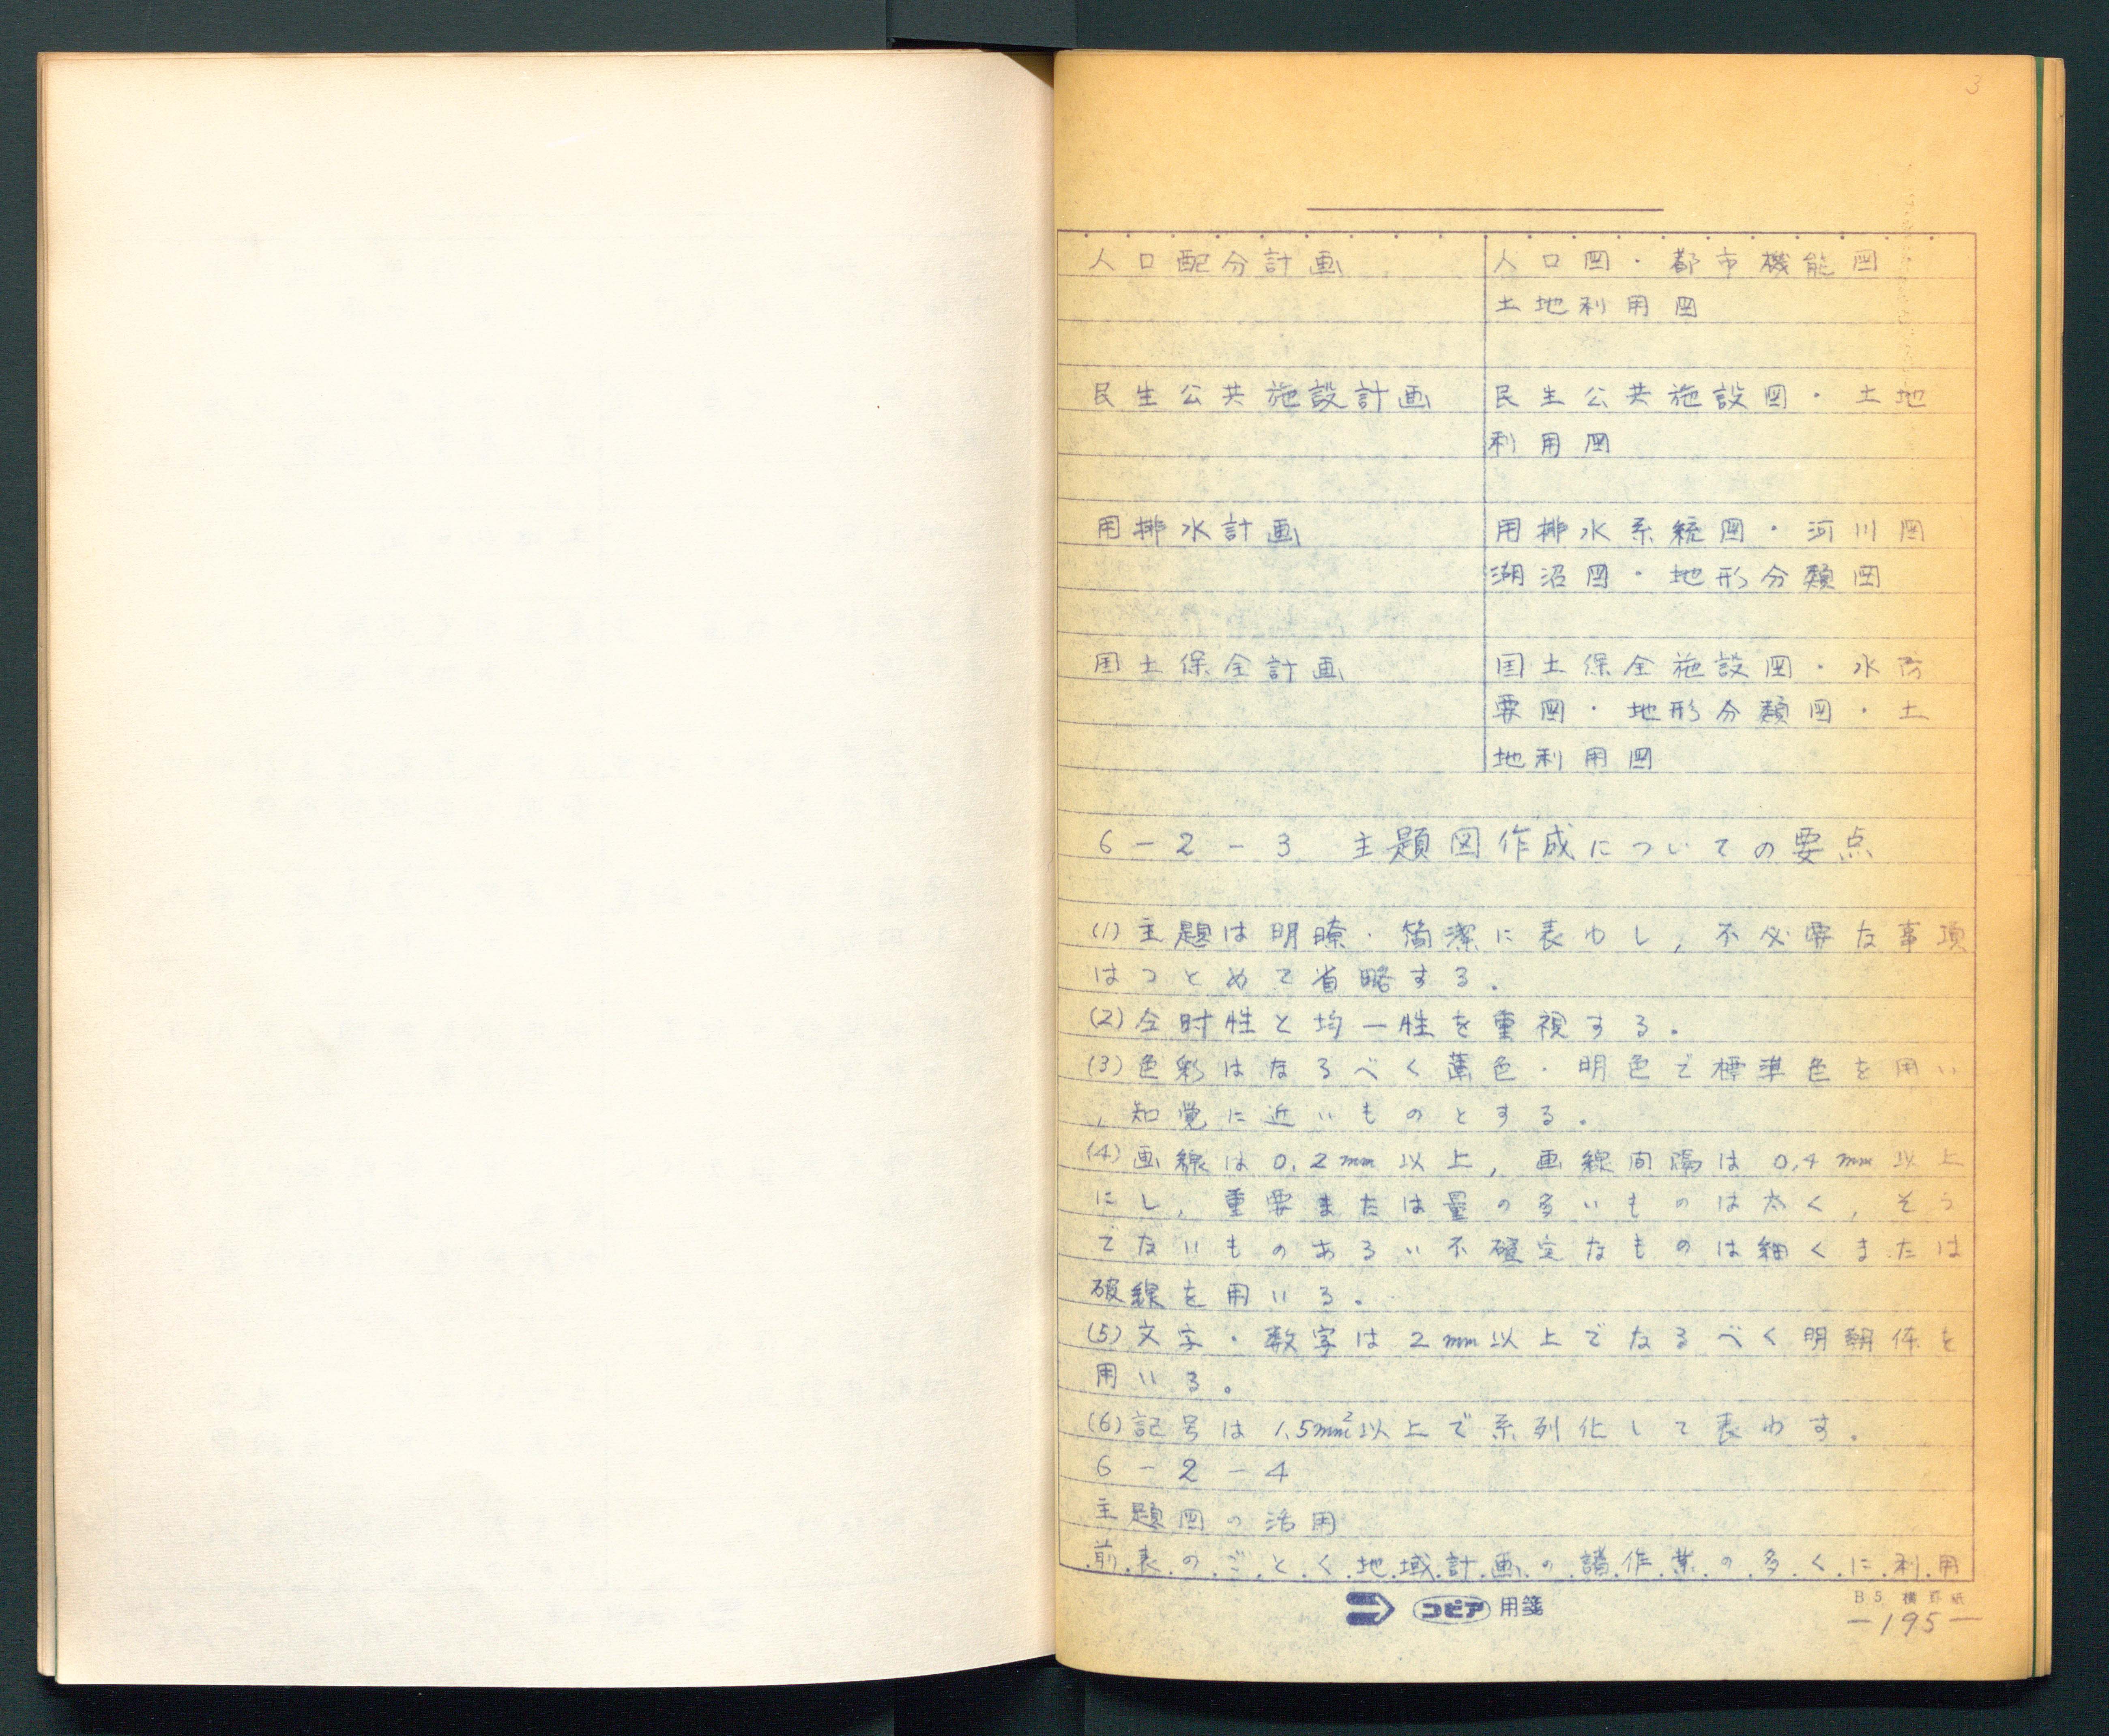 3
人口配分計画 人口図・都市機能図
土地利用図
民生公共施設計画 民生公共施設図・土地
利用図
用排水計画 用排水系統図・河川図
湖沼図・地形分類図
国土保全計画 国土保全施設図・水防
要図・地形分類図・土
地利用図
6-2-3 主題図作成についての要点
(1)主題は明瞭・簡潔に表わし,不必要な事項
はつとめて省略する。
(2)全时性と均一性を重視する。
(3)色彩はなるべく薄色・明色で標準色を用い
,知覚に近いものとする。
(4)画線は0.2mm以上,画線間隔は0.4mm以上
にし,重要または量の多いものは太く,そう
でないものあるい不確定なものは細くまたは
破線を用いる。
(5)文字・数字は2mm以上でなるべく明朝体を
用いる。
(6)記号は1.5mm²以上で系列化して表わす。
6-2-4
主題図の活用
前表のごとく地域計画の諸作業の多くに利用
コピア用箋
B5 横罫紙
-195-